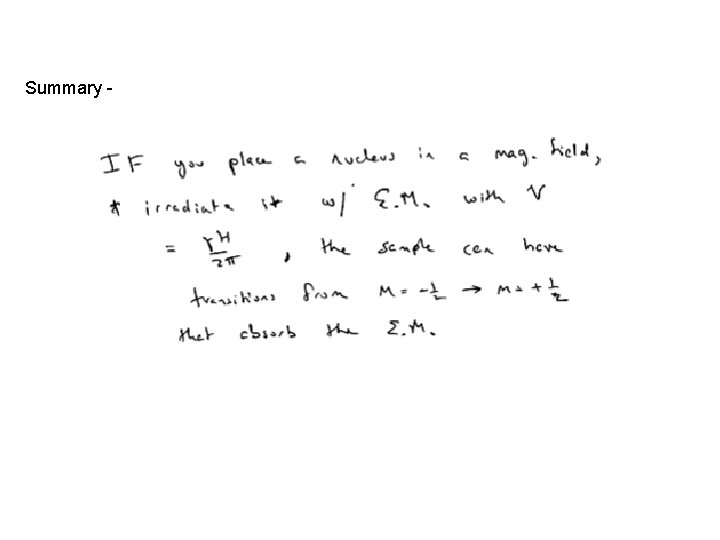 Summary -
IF you place a nucleus in a mag. field,
+ irradiate it w/ E.M. with ν
= γH/2π , the sample can have
transitions from M = -1/2 → m = +1/2
that absorb the E.M.